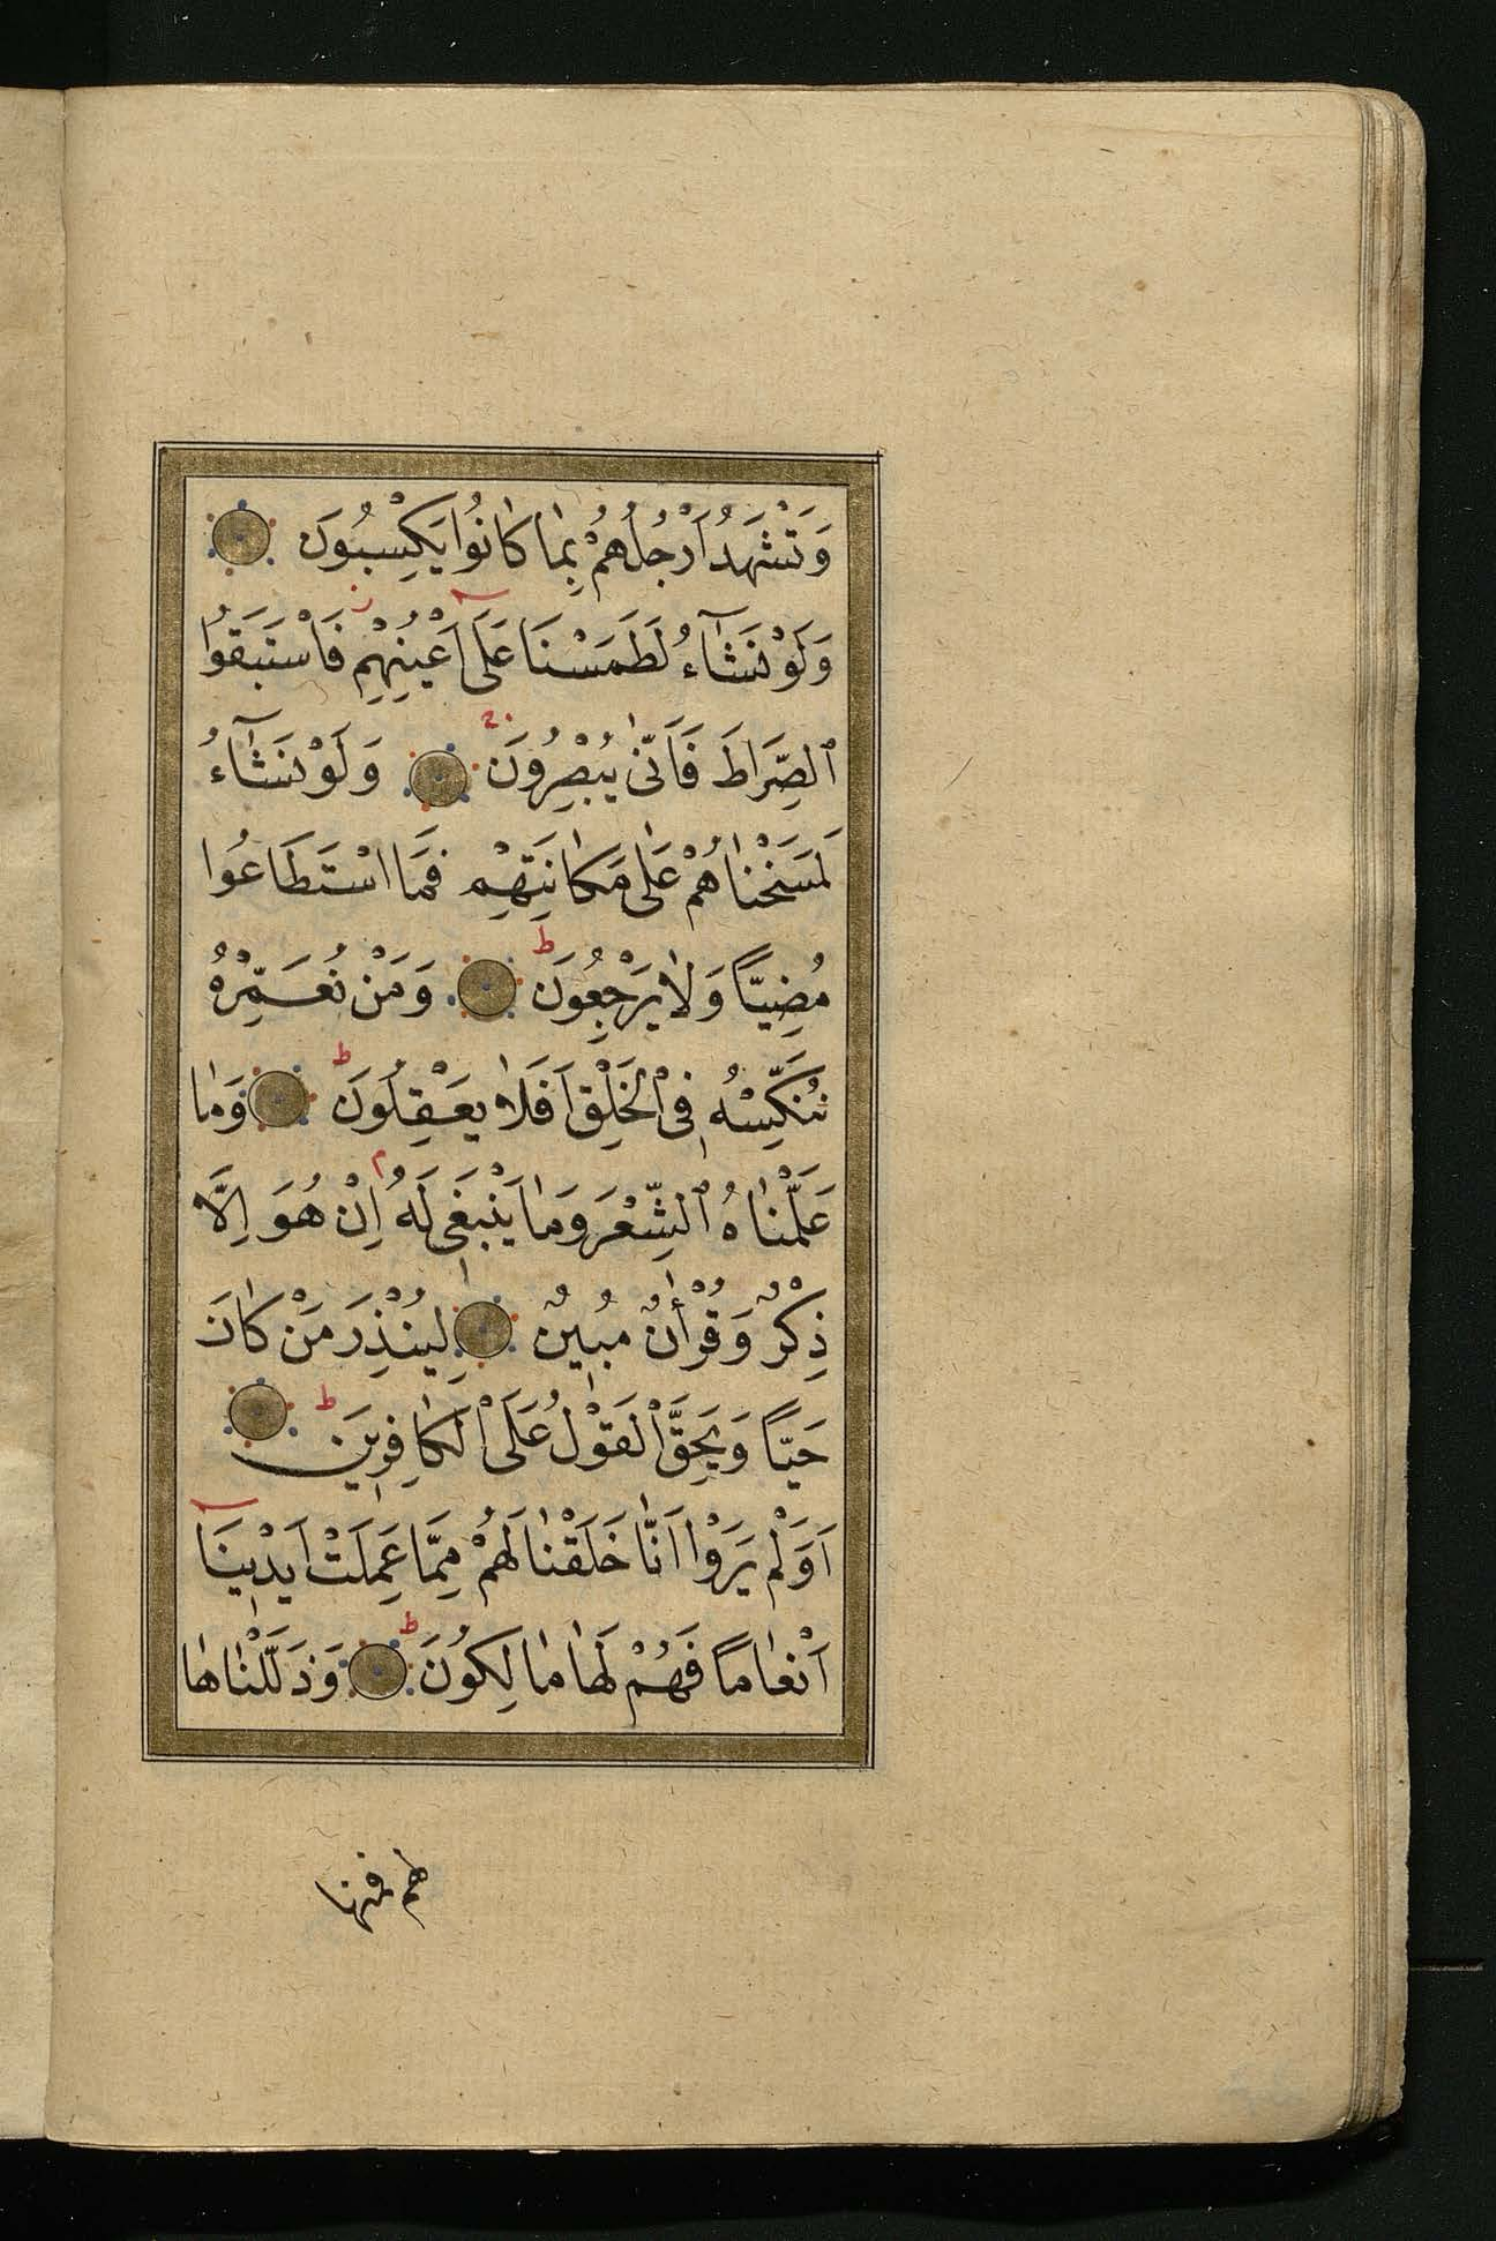 وَتَشْهَدُ اَرْجُلُهُمْ بِمٰا كٰانُوا يَكْسِبُونَ
وَلَوْ نَشَآءُ لَطَمَسْنَا عَلَى اَعْيُنِهِمْ فَاسْتَبَقُوا
ٱلصِّرَاطَ فَاَنّٰى يُبْصِرُونَ وَلَوْ نَشَآءُ
لَمَسَخْنٰاهُمْ عَلٰى مَكٰانَتِهِمْ فَمَا اسْتَطَاعُوا
مُضِيّاً وَلٰا يَرْجِعُونَ ط وَمَنْ نُعَمِّرْهُ
نُنَكِّسْهُ فِى الْخَلْقِ اَفَلٰا يَعْقِلُونَ ط وَمٰا
عَلَّمْنٰاهُ ٱلشِّعْرَ وَمٰا يَنْبَغٖى لَهُ م اِنْ هُوَ اِلَّا
ذِكْرٌ وَقُرْأٰنٌ مُبٖينٌ لِيُنْذِرَ مَنْ كٰانَ
حَيّاً وَيَحِقَّ الْقَوْلُ عَلَى الْكٰافِرٖينَ ط
اَوَلَمْ يَرَوْا اَنّٰا خَلَقْنٰا لَهُمْ مِمَّا عَمِلَتْ اَيْدٖينَا
اَنْعٰاماً فَهُمْ لَهٰا مٰالِكُونَ ط وَذَلَّلْنٰاهٰا
لهم فمنها